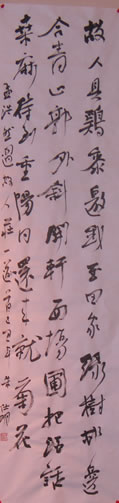 故人具鷄黍邀我至田家綠樹村邊
合青山郭外斜開軒面場圃把酒話
桑麻待到重陽日還來就菊花
孟浩然過故人莊